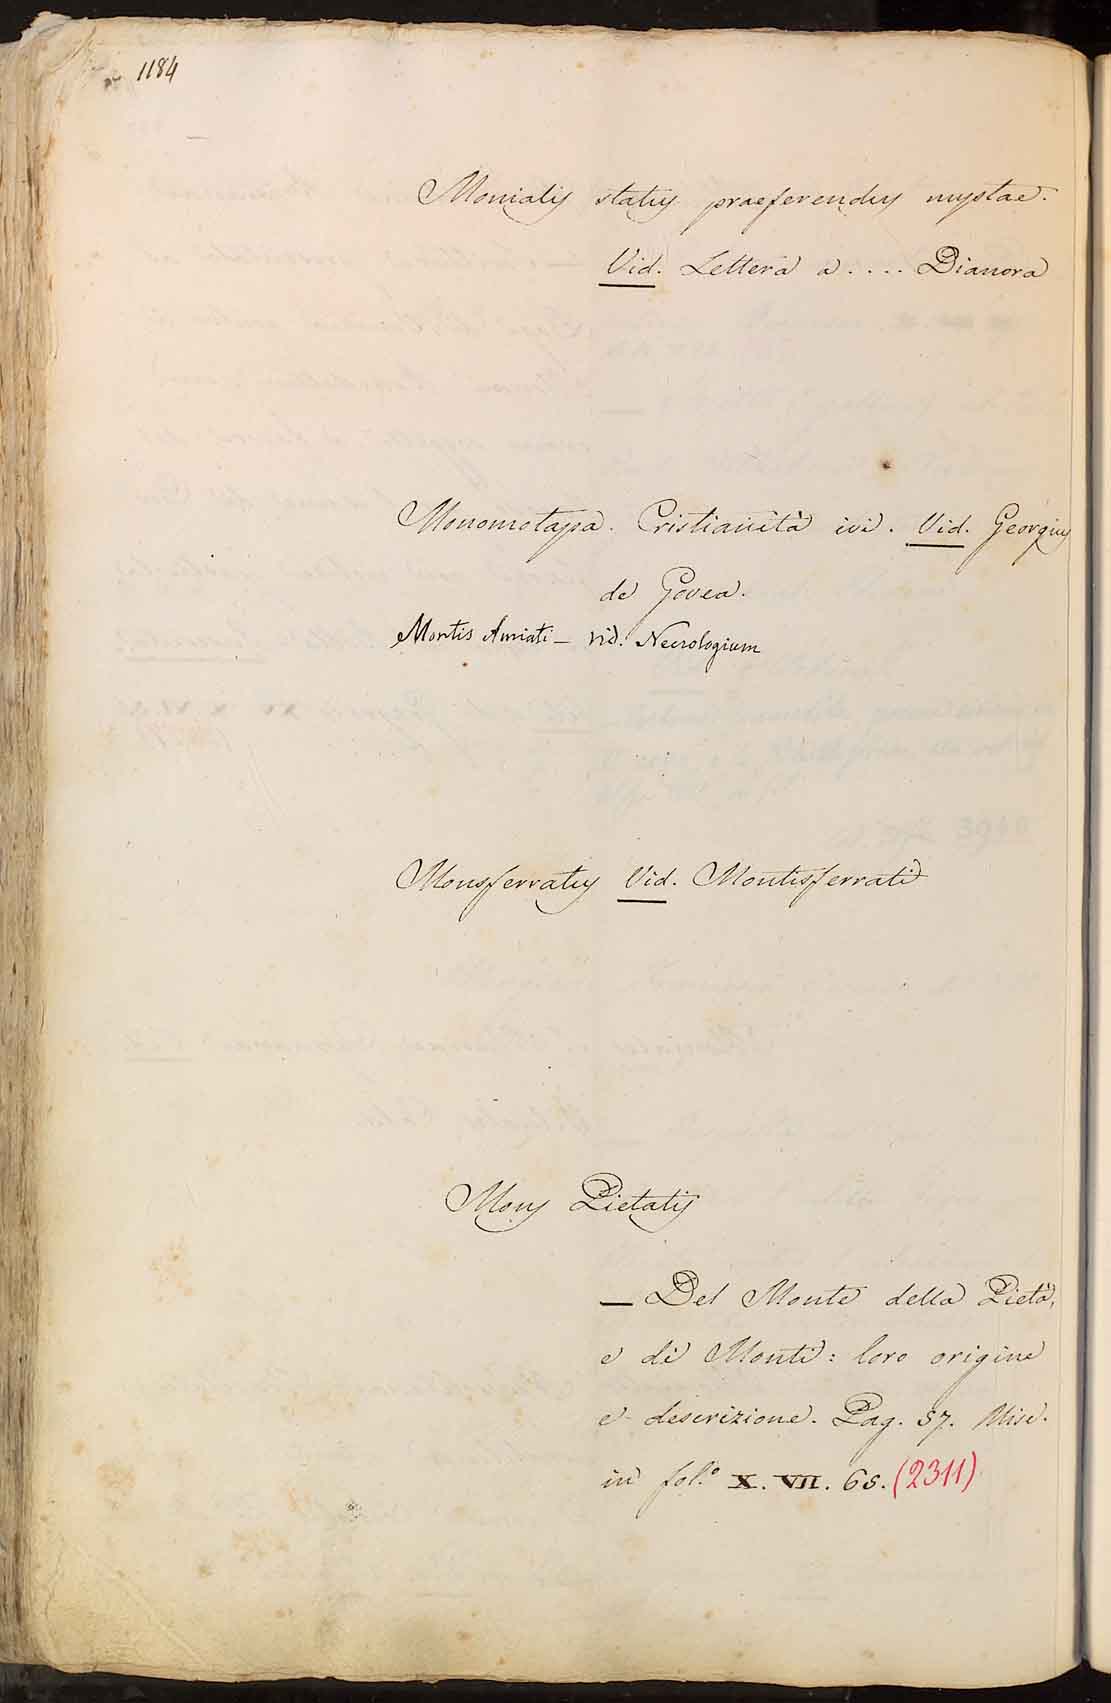 1184
Monialis status praeferendus nuptae.
Vid. Lettera a .... Dianora
Monomotapa. Cristianità ivi. Vid. Georgius
de Govea.
Montis Amiati – vid. Necrologium
Monsferratus Vid. Montisferrati
Mons Pietatis
— Del Monte della Pietà,
e di Monti: loro origine
e descrizione. Pag. 57. Misc.
in fol.º X. VII. 65. (2311)